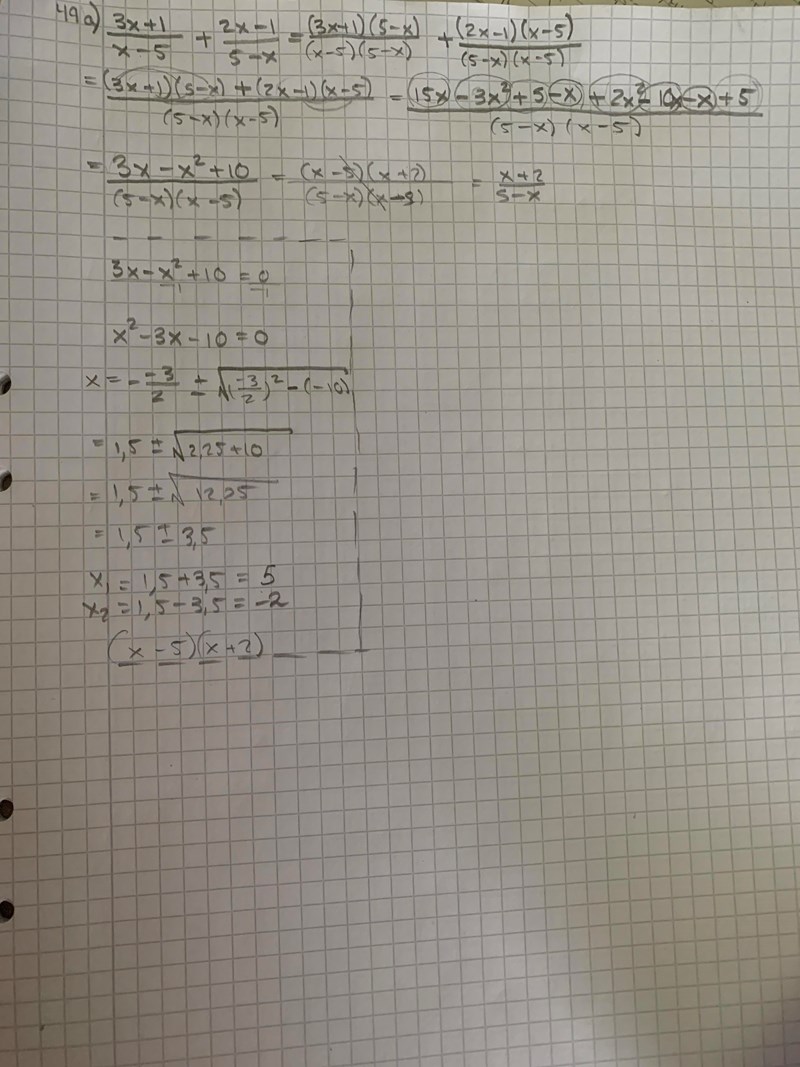 49 a) (3x+1)/(x-5) + (2x-1)/(5-x) = (3x+1)(5-x)/(x-5)(5-x) + (2x-1)(x-5)/(5-x)(x-5)
= ((3x+1)(5-x) + (2x-1)(x-5))/(5-x)(x-5) = (15x - 3x² + 5 - x + 2x² - 10x - x + 5)/(5-x)(x-5)
= (3x - x² + 10)/(5-x)(x-5) = (x-5)(x+2)/(5-x)(x-5) = (x+2)/(5-x)
3x - x² + 10 = 0
-1 -1
x² - 3x - 10 = 0
x = - -3/2 ± √((-3/2)² - (-10))
= 1,5 ± √(2,25+10)
= 1,5 ± √(12,25)
= 1,5 ± 3,5
x₁ = 1,5 + 3,5 = 5
x₂ = 1,5 - 3,5 = -2
(x - 5)(x + 2)